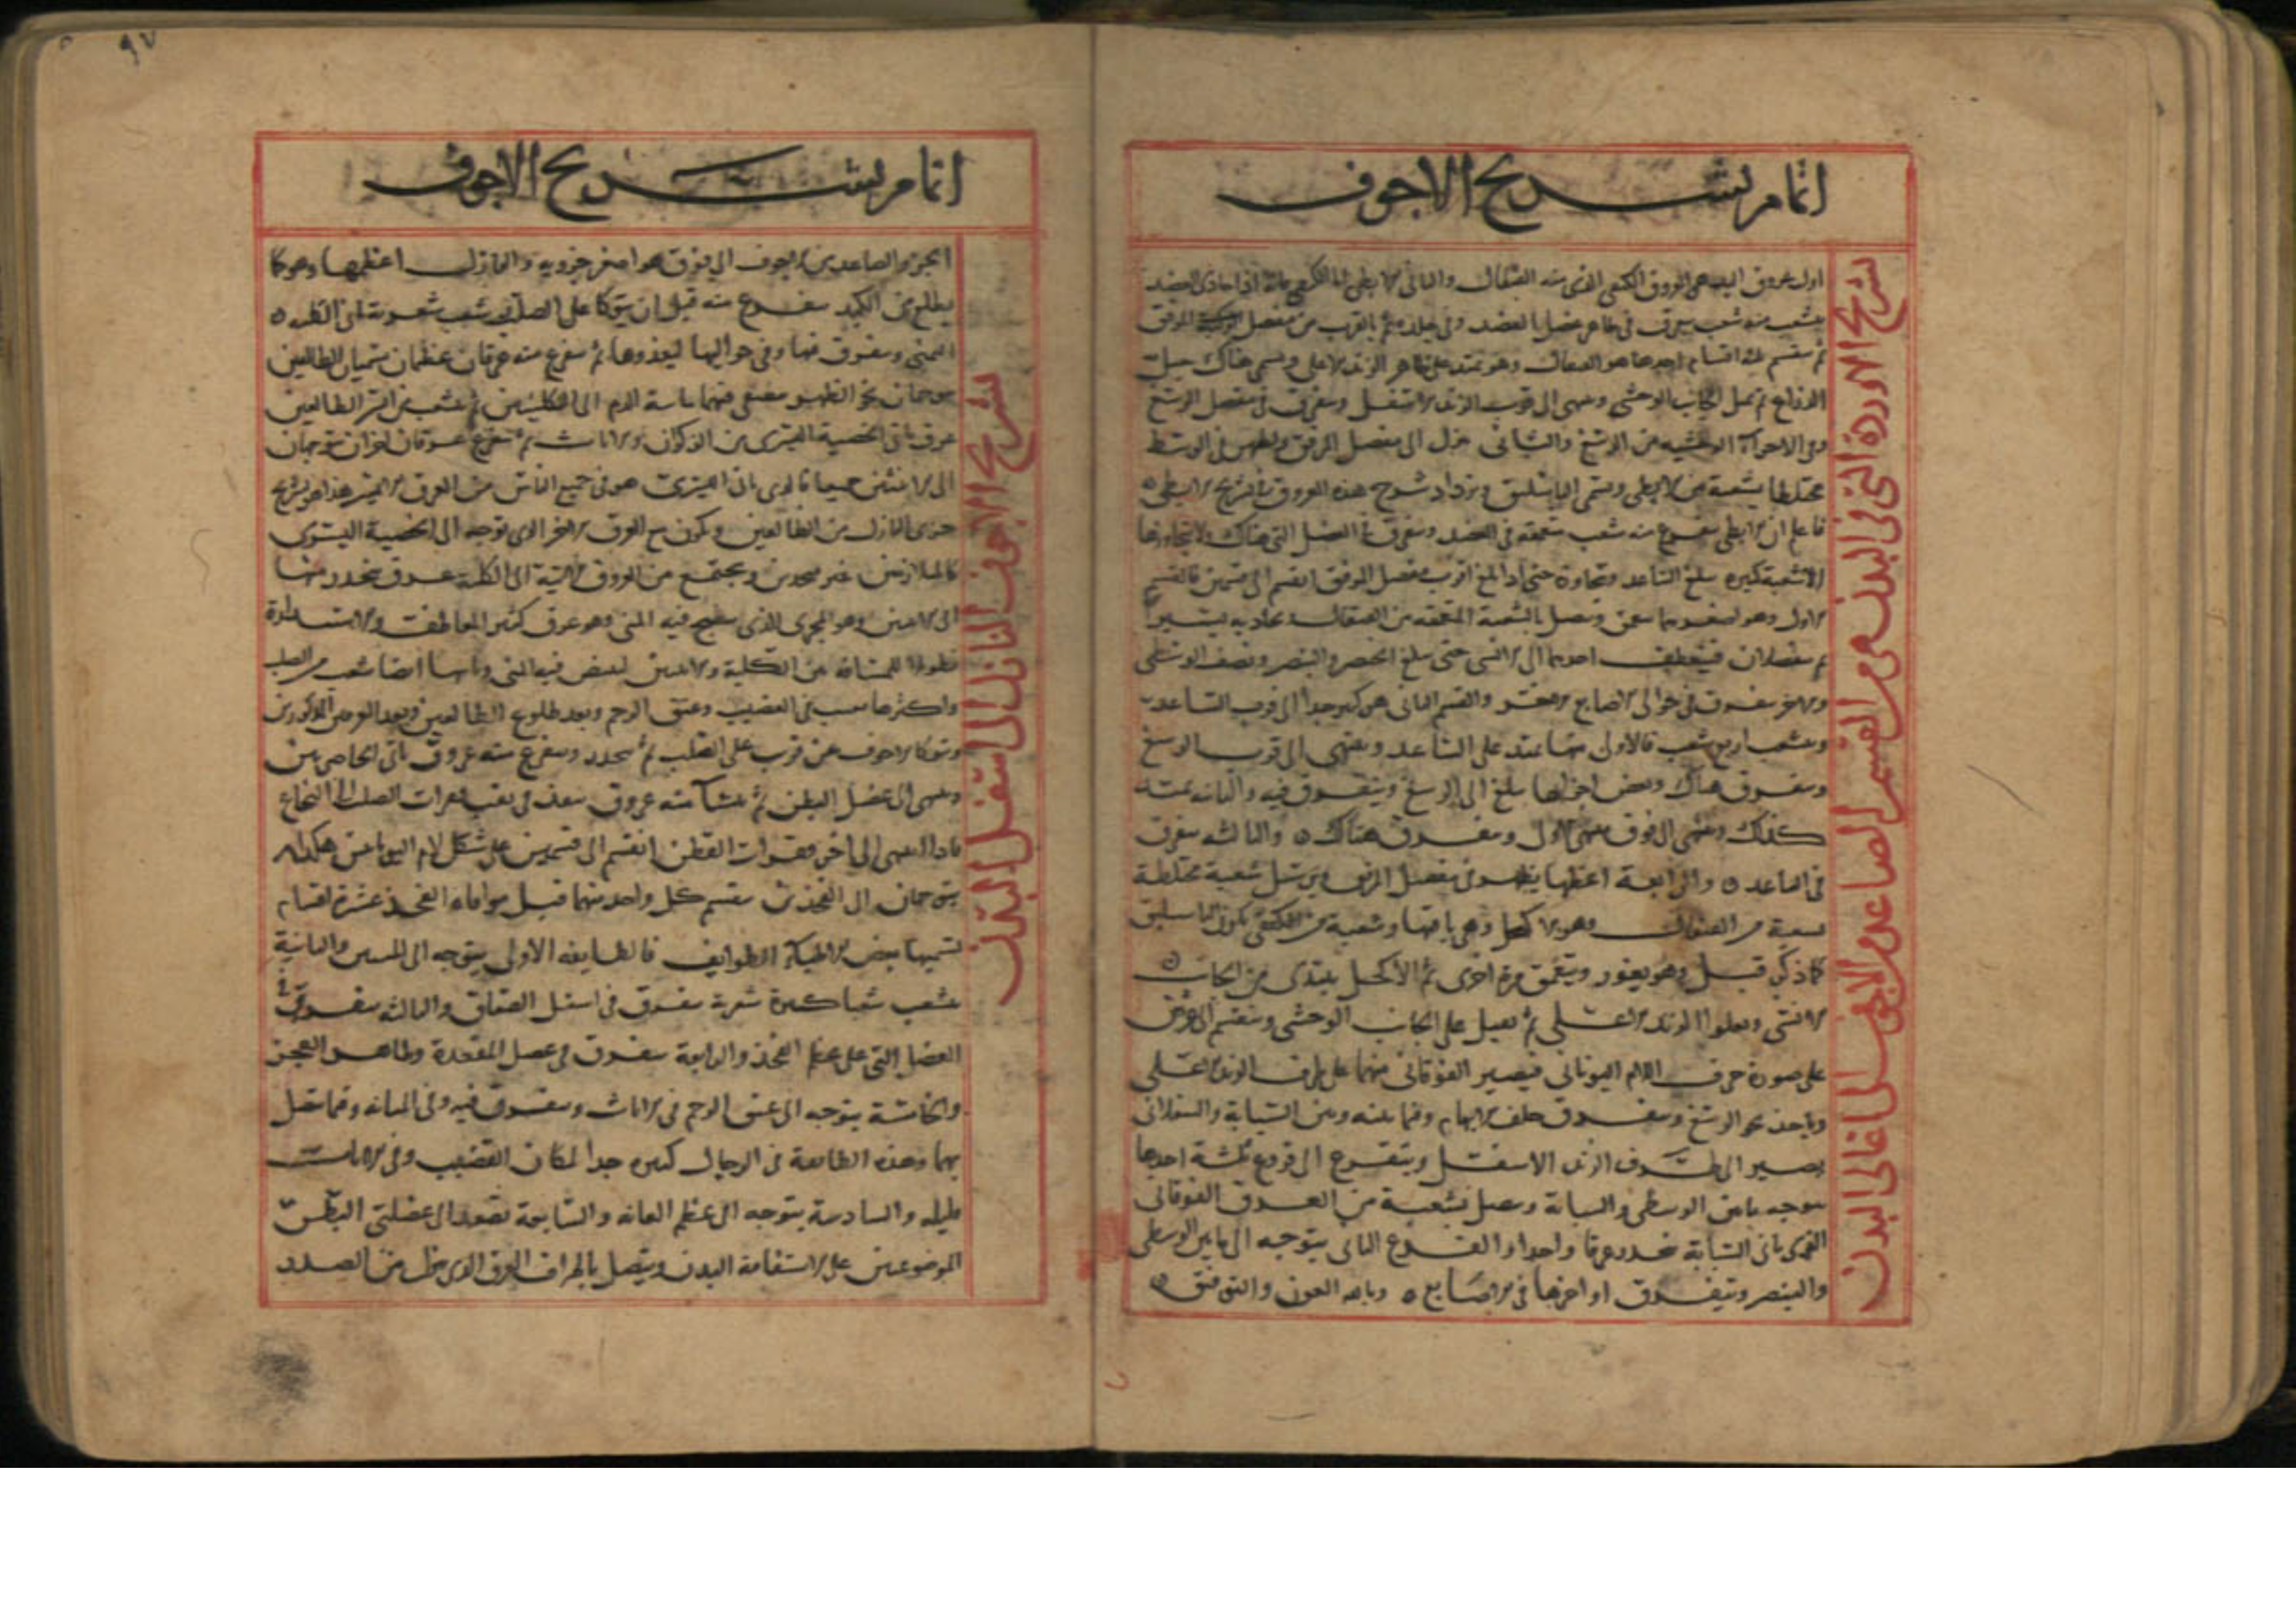 اتمام تشريح الاجوف
تشريح الاوردة التى فى البدن هى من القسم الصاعد من الاجوف الى اعالى البدن
اول عروق اليد هى العروق الكتفى الذى منه القيفال والثانى الابطى اما الكتفى فانه اذا حاذى العضد
يتشعب منه شعب تتفرق فى ظاهر عضل العضد وفى جلده ثم بالقرب من مفصل المرفق
ثم ينقسم ثلثه اقسام احدها هو القيفال وهو يمتد على ظاهر الزند الاعلى ويسمى هناك حبل
الذراع ثم يميل الجانب الوحشى وينتهى الى قرب الزند الاسفل ويتفرق فى مفصل الرسغ
وفى الاجزاء الوحشيه من الرسغ والثانى ينزل الى مفصل المرفق ويظهر فى الوسط
مختلطا بشعبة من الابطى ويسمى الباسليق ويزداد شرح هذه العروق بتشريح الابطى
فاعلم ان الابطى يتفرع منه شعب متعمقه فى العضد وتتفرق فى العضل التى هناك لا تتجاوزها
الا شعبة كبيره تبلغ الساعد وتجاوزه حتى اذا بلغ اقرب مفصل المرفق انقسم الى قسمين فالقسم
الاول وهو اصغرهما يتعمق وتتصل بالشعبة المتعمقه من القيفال يحاذيه يسيرا
ثم ينفصلان فينعطف احدهما الى الانسى حتى يبلغ الخنصر والبنصر ونصف الوسطى
والاخر يتفرق فى حوالى الاصابع الاخر والقسم الثانى هو كبير جدا الى قرب الساعد
ويتشعب اربع شعب فالاولى منها تمتد على الساعد وينتهى الى قرب الرسغ
ويتفرق هناك وبعض اجزائها يبلغ الى الرسغ ويتفرق فيه والثانيه تمتد
كذلك وينتهى الى فوق منتهى الاول ويتفرق هناك ٥ والثالثه تتفرق
فى الساعد ٥ والرابعة اعظمها يظهر فى مفصل المرفق ويرسل شعبة مختلطة
بشعبة من القيفال وهو الاكحل وهى باقيها وشعبة من الكتفى يكون الباسليق
كما ذكر قبل وهو يغور ويتعمق مرة اخرى ثم الاكحل يبتدى من الجانب
الانسى ويعلوا الزند الاعلى ثم يميل على الجانب الوحشى وينقسم الى فرعين
على صورة حرف اللام اليونانى فيصير الفوقانى منهما على طرف الزند الاعلى
وياخذ نحو الرسغ ويتفرق خلف الابهام وفيما بينه وبين السبابة والسفلانى
يصير الى طرف الزند الاسفل ويتفرع الى فروع ثلثة احدها
يتوجه ما بين الوسطى والسبابة ويتصل بشعبة من العرق الفوقانى
الذى ياتى السبابة فيتحدد عرقا واحدا و الفرع الثانى يتوجه الى ما بين الوسطى
والبنصر ويتفرق اواخرها فى الاصابع ٥ وبالله العون والتوفيق ٥
٩٧
اتمام تشريح الاجوف
تشريح الاجوف النازل الى اسفل البدن
الجزو الصاعد من الاجوف الى فوق هو اصغر جزويه والنازل اعظمها وهو كما
يطلع من الكبد يتفرع منه قبل ان يتوكا على الصلب شعب شعرية الى الكلية
اليمنى ويتفرق فيها وفى حواليها ليغذوها ثم يتفرع منه عرقان عظيمان يسميان الطالعين
يتوجهان نحو الظهر يصفى فيهما مائية الدم الى الكليتين ثم يتشعب من ايسر الطالعين
عرق ياتى الخصية اليسرى من الذكران والاناث ثم يتفرع عرقان اخران يتوجهان
الى الانثيين جميعا فالذى ياتى اليسرى هو فى جميع الناس من العرق الايسر هذا هو تشريح
جزوى النازل من الطالعين ويكون مع العرق الاخر الذى يتوجه الى الخصية اليسرى
كالملازمين غير محدين ويجتمع من العروق الاتية الى الكلية عروق تتحدر منها
الى الانثيين وهو المجرى الذى ينضج فيه المنى وهو عرق كثير المعاطف والاستدارة
فطولا للمسافه بين الكلية والانثيين ليبيض فيه المنى وياتيها ايضا شعب من الصلب
واكثرها يتشعب فى القضيب وعنق الرحم وبعد طلوع الطالعين وبعد العرقين المذكورين
ويتوكا الاجوف عن قرب على الصلب ثم ينحدر ويتفرع منه عروق تاتى الخاصرتين
وينتهى الى عضل البطن ثم ينشا منه عروق ينفذ فى ثقب فقرات الصلب الى النخاع
فاذا انتهى الى اخر فقرات القطن انقسم الى قسمين على شكل لام اليونانيين هكذا ٨
يتوجهان الى الفخذين ينقسم كل واحد منهما قبل موافاه الفخذ عشرة اقسام
تسميها بعض الاطباء الطوايف فالطايفه الاولى يتوجه الى المتنين والثانية
يتشعب شعبا كثيرة شعرية يتفرق فى اسفل الصفاق والثالثه يتفرق فى
العضل التى على عظم العجز والرابعة يتفرق فى عضل المقعدة وظاهر العجز
والخامسة يتوجه الى عنق الرحم فى الاناث ويتفرق فيه وفى المثانه وفيما يتصل
بهما وهذه الطايفة فى الرجال كبيره جدا لمكان القضيب وفى الاناث
قليله والسادسة يتوجه الى عظم العانه والسابعة تصعد الى عضلتى البطن
الموضوعتين على استقامة البدن ويتصل باطراف العرق الذى ينزل من الصدر